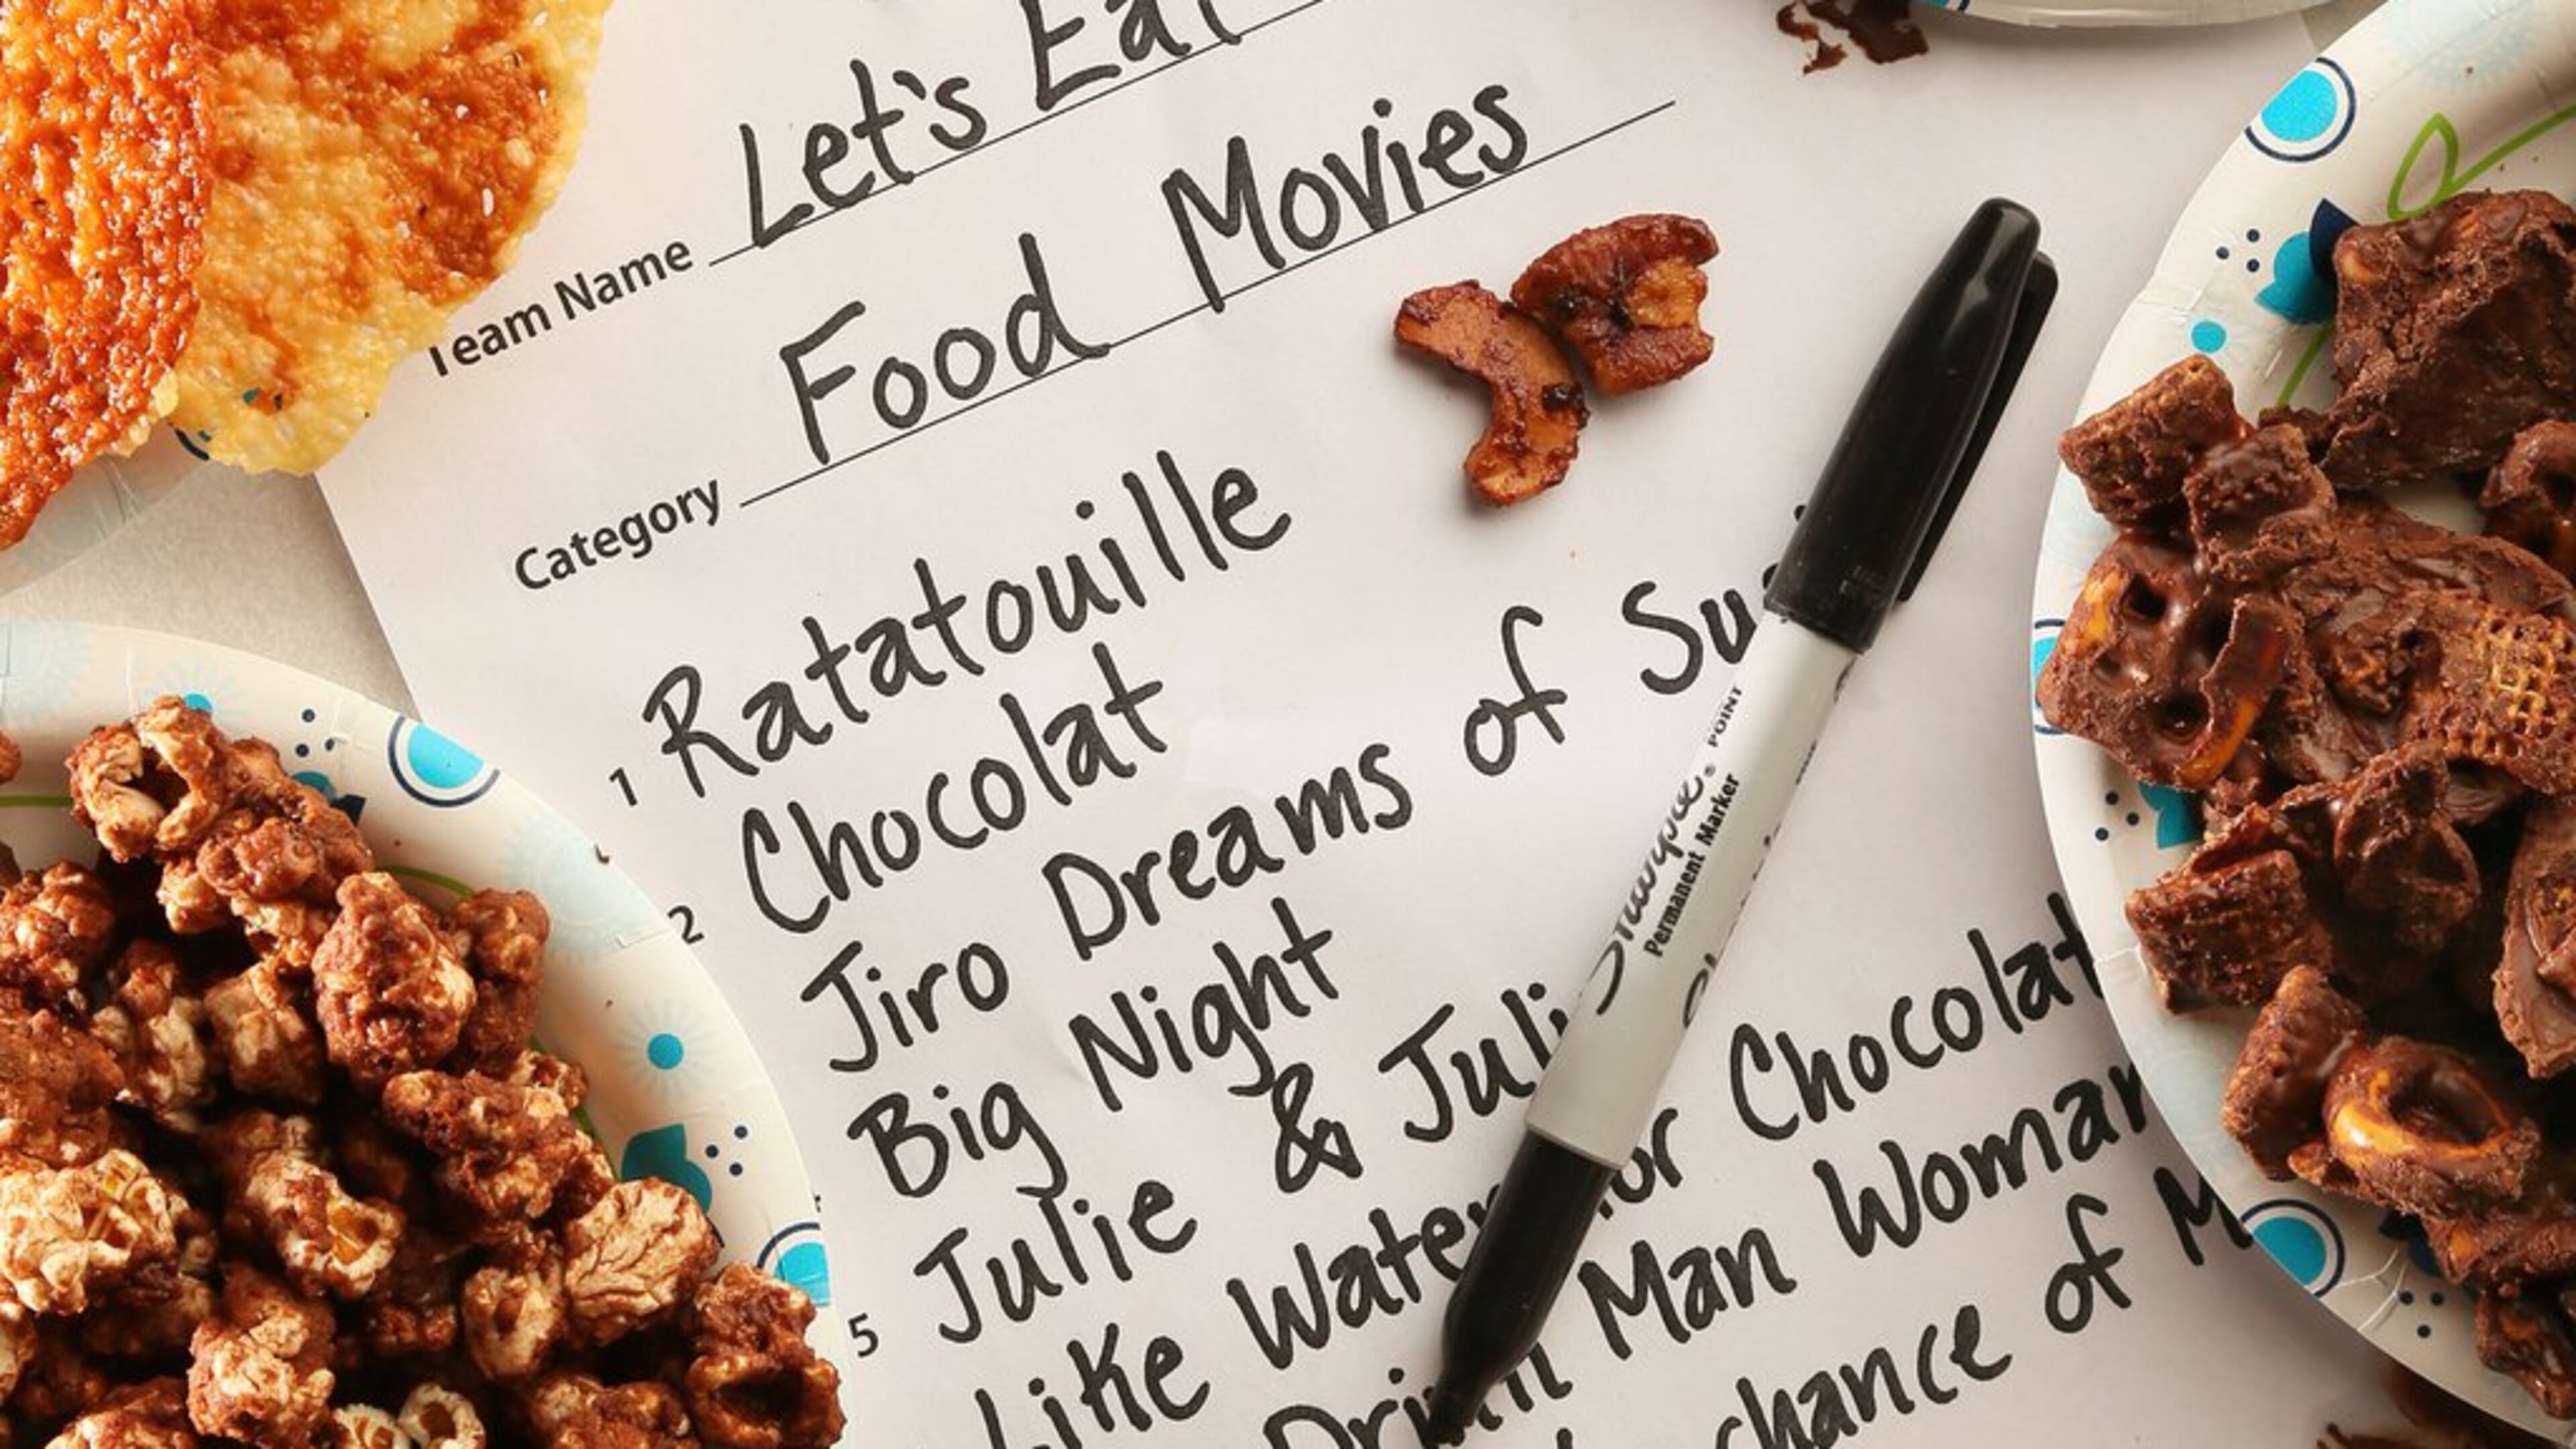 Team Name Let's Eat
Category Food Movies
1 Ratatouille
2 Chocolat
Jiro Dreams of
Big Night
5 Julie &
Like Chocolat
Man Woman
chance of
Sharpie. POINT
Permanent Marker